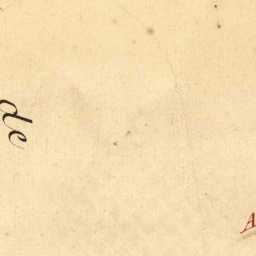 de
A